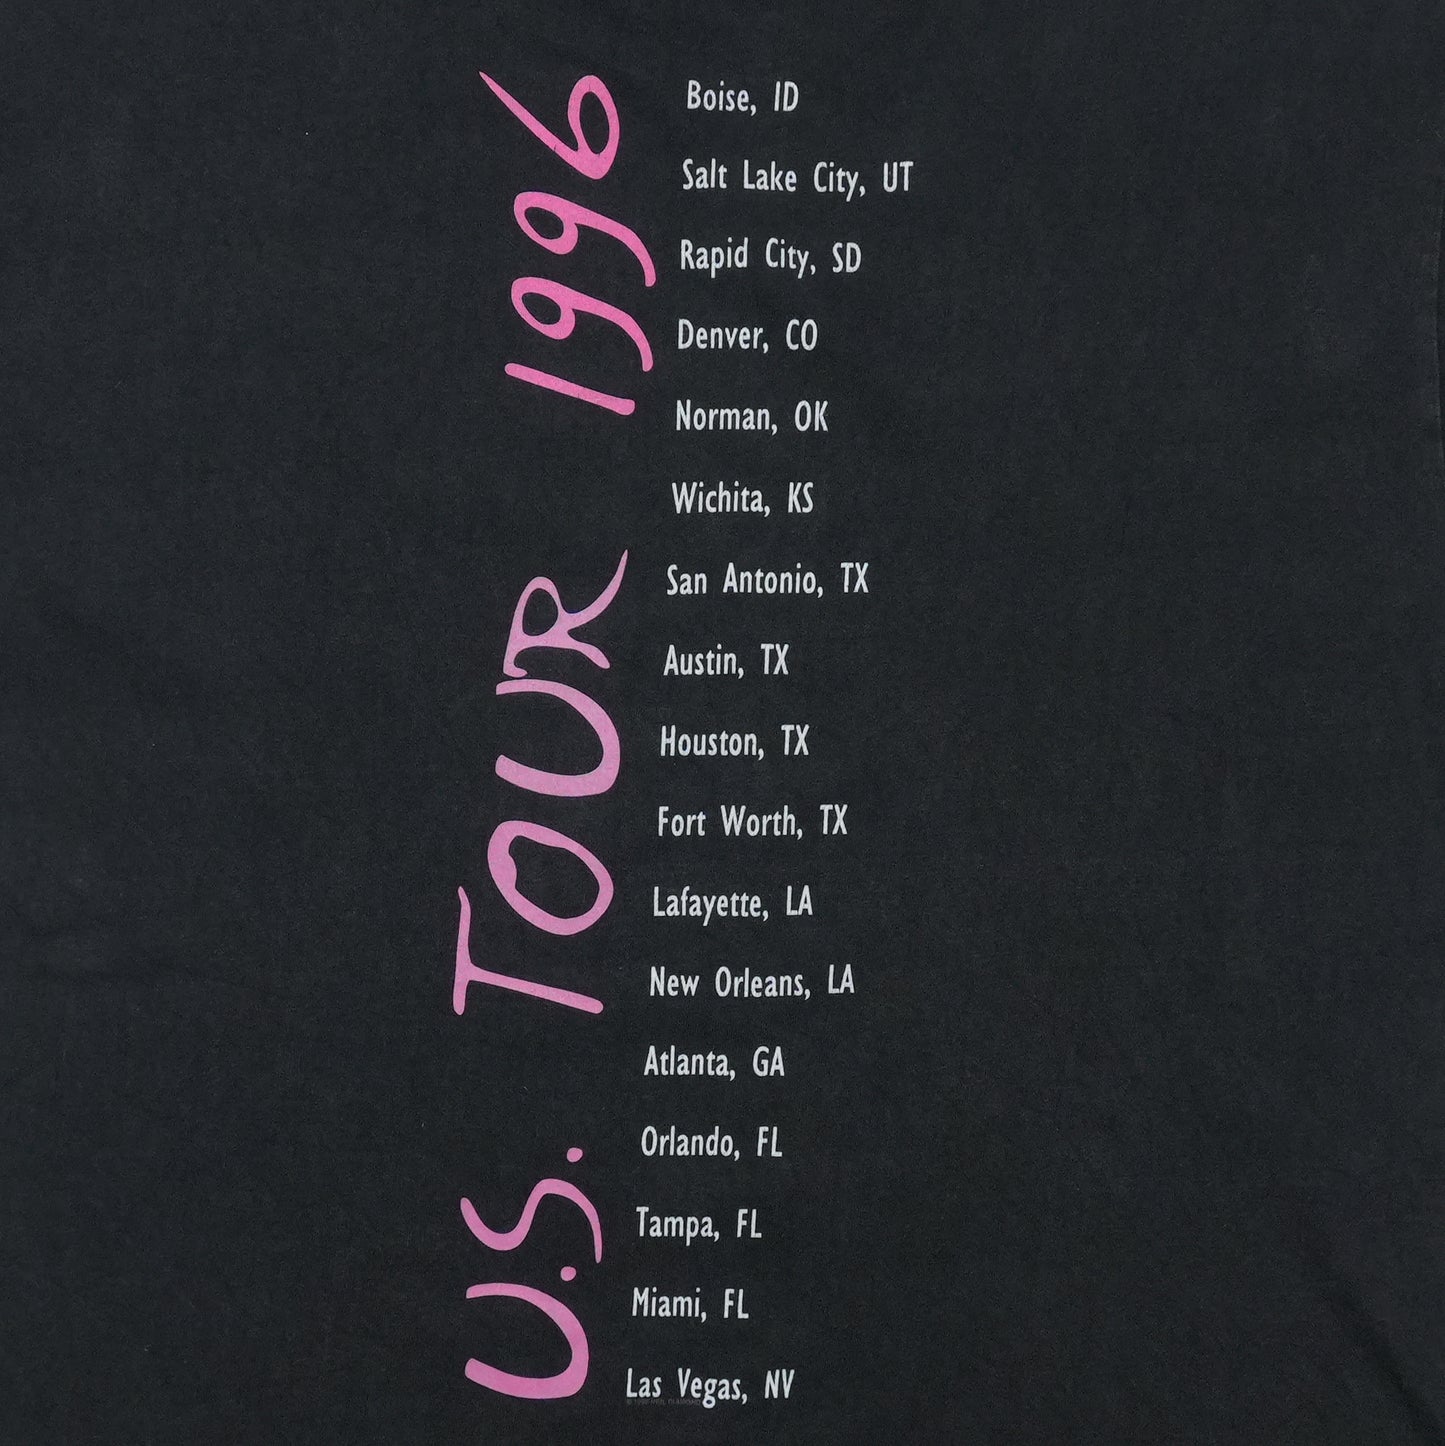 U.S. TOUR 1996
Boise, ID
Salt Lake City, UT
Rapid City, SD
Denver, CO
Norman, OK
Wichita, KS
San Antonio, TX
Austin, TX
Houston, TX
Fort Worth, TX
Lafayette, LA
New Orleans, LA
Atlanta, GA
Orlando, FL
Tampa, FL
Miami, FL
Las Vegas, NV
NEIL DIAMOND